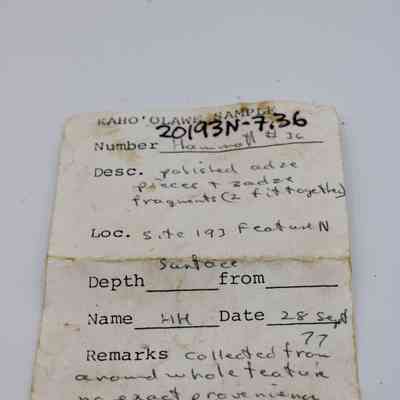 KAHO'OLAWE SAMPLE
20193N-7.36
Number Hammatt #36
Desc. polished adze
pieces + 3 adze
fragments (2 fit together)
Loc. Site 193 Feature N
Surface
Depth from
Name HH Date 28 Sept
77
Remarks collected from
around whole feature
no exact provenience